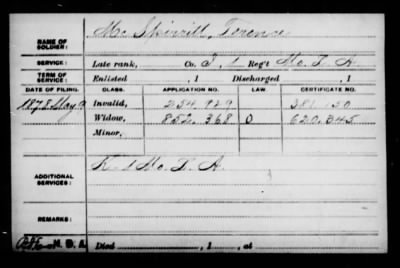 NAME OF SOLDIER: Mc Skirvitt, Terence
SERVICE: Late rank, Co. I, 1 Reg't Mo. L. A.
TERM OF SERVICE: Enlisted , 1 Discharged , 1
DATE OF FILING. CLASS. APPLICATION NO. LAW. CERTIFICATE NO.
1878 May 9 Invalid, 254.929 381.150
Widow, 852.368 O 620.345
Minor,
ADDITIONAL SERVICES: K 1 Mo. L. A.
REMARKS:
H. D. A. Died , 1 , at